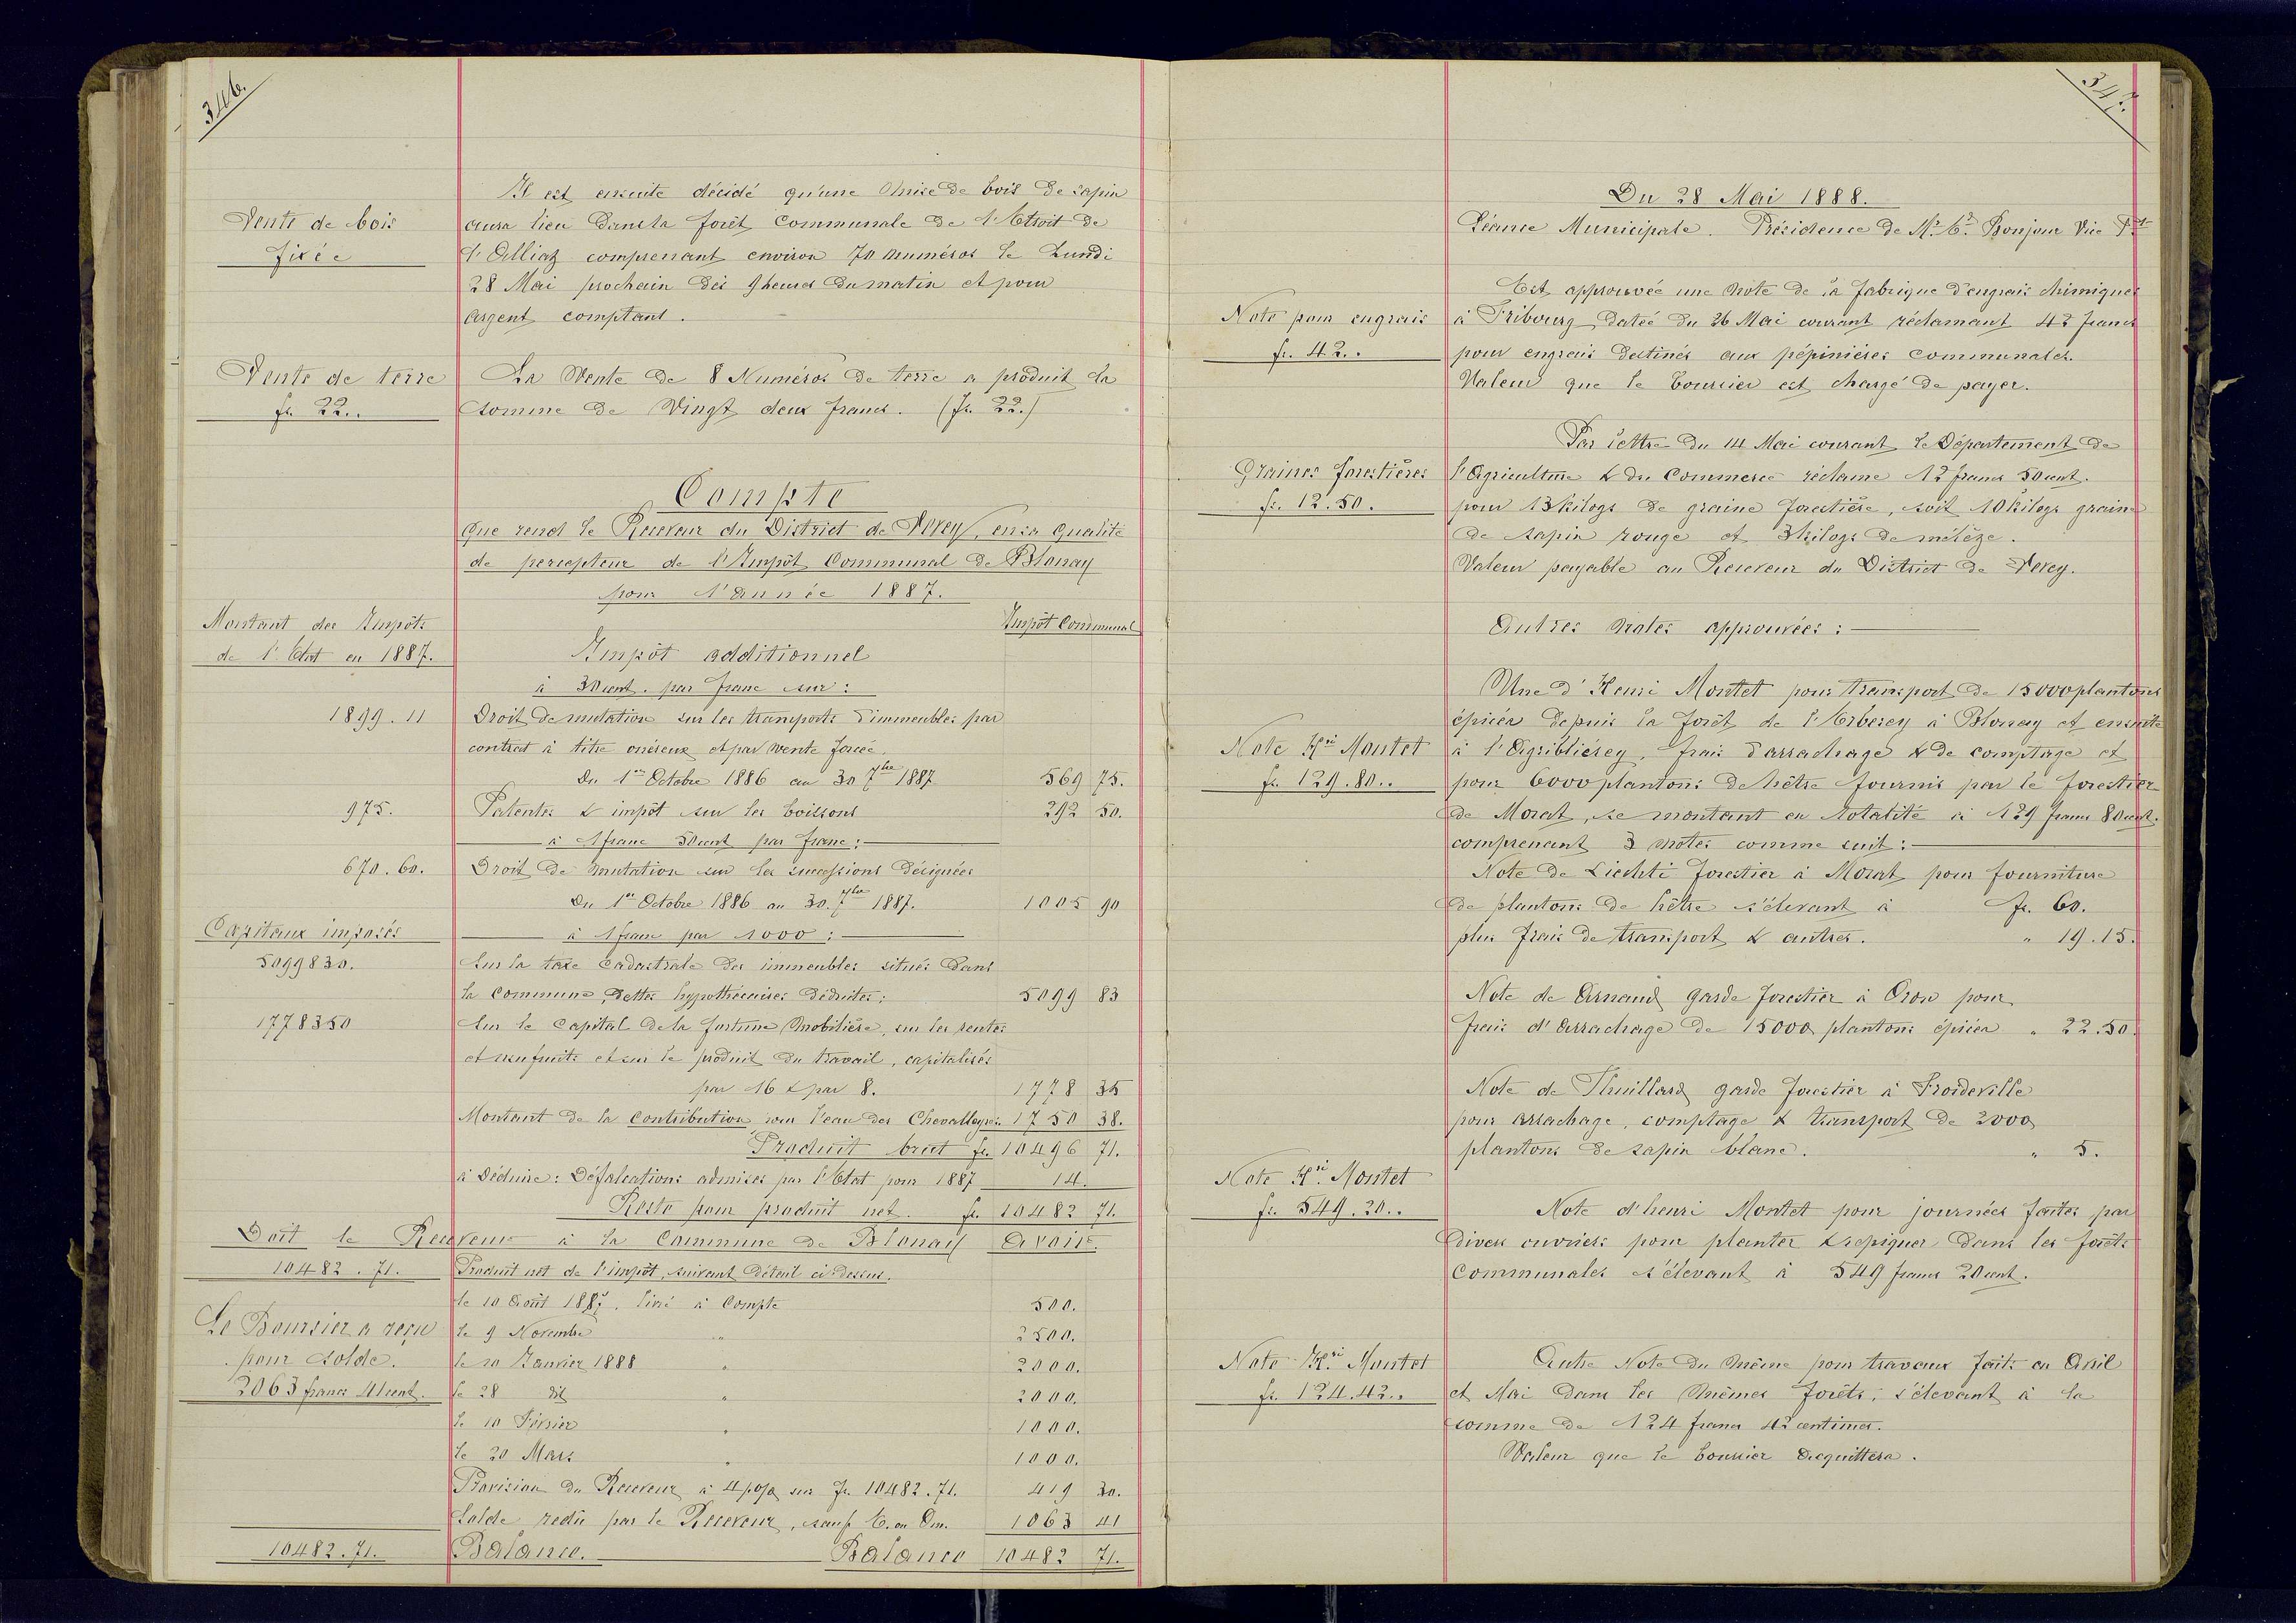 346.
Vente de bois
fixée
Il est ensuite décidé qu'une Mise de bois de sapin
aura lieu dans la forêt communale de l'Etroit de
l'Alliaz comprenant environ 70 numéros le Lundi
28 Mai prochain dès 9 heures du matin et pour
argent comptant.
Vente de terre
fr. 22..
La Vente de 8 Numéros de terre a produit la
somme de Vingt deux francs. (fr. 22.)
Compte
que rend le Receveur du District de Vevey, en sa qualité
de percepteur de l'Impôt Communal de Blonay
pour l'année 1887.
Montant des Impôts
de l'Etat en 1887.
Impôt Communal
Impôt additionnel
à 30 cent. par franc sur :
1899.11 Droit de mutation sur les transports d'immeubles par
contrat à titre onéreux et par vente forcée.
Du 1er Octobre 1886 au 30 7bre 1887 569 75.
975. Patentes & impôt sur les boissons 292 50.
à 1 franc 50 cent par franc :
670.60. Droit de mutation sur les successions désignées
Du 1er Octobre 1886 au 30. 7bre 1887. 1005 90
Capitaux imposés
à 1 franc par 1000 :
5099830. Sur la taxe cadastrale des immeubles situés dans
la Commune, dettes hypothécaires déduites : 5099 83
1778350 Sur le capital de la fortune mobilière, sur les rentes
et usufruits et sur le produit du travail, capitalisés
par 16 & par 8. 1778 35
Montant de la contribution pour l'eau des Chevalleyres 1750 38.
Produit brut fr. 10496 71.
à Déduire : Défalcations admises par l'Etat pour 1887 14.
Reste pour produit net. fr. 10482 71.
Doit le Receveur à la Commune de Blonay Avoir.
10482.71. Produit net de l'impôt, suivant détail ci-dessus.
le 10 Août 1887. livré à Compte 500.
Le Boursier a reçu
pour solde.
2063 francs 41 cent.
le 9 Novembre " 2500.
le 10 Janvier 1888 " 2000.
le 28 dit " 2000.
le 10 Février " 1000.
le 20 Mars " 1000.
Provision du Receveur à 4 p% sur fr. 10482.71. 419 30.
Solde redû par le Receveur, sauf E. ou Om. 1063 41
10482.71. Balance. Balance 10482 71.
347.
Du 28 Mai 1888.
Séance Municipale. Présidence de Mr. Bonjour Vice Pdt
Note pour engrais
fr. 42..
Est approuvée une Note de la fabrique d'engrais chimiques
à Fribourg datée du 26 Mai courant réclamant 42 francs
pour engrais destinés aux pépinières communales.
Valeur que le boursier est chargé de payer.
Graines forestières
fr. 12.50.
Par lettre du 14 Mai courant le Département de
l'Agriculture & du Commerce réclame 12 francs 50 cent.
pour 13 kilogs de graine forestière, soit 10 kilogs graine
de sapin rouge et 3 kilogs de mélèze.
Valeur payable au Receveur du District de Vevey.
Autres Notes approuvées :
Note Hri Montet
fr. 129.80..
Une d'Henri Montet pour transport de 15000 plantons
épicéa depuis la forêt de l'Erberey à Blonay et ensuite
à l'Agribliérey, frais d'arrachage & de comptage et
pour 6000 plantons de hêtre fournis par le forestier
de Morat, se montant en totalité à 129 francs 80 cent.
comprenant 3 notes comme suit :
Note de Liechti forestier à Morat pour fourniture
de plantons de hêtre s'élevant à fr. 60.
plus frais de transport & autres. " 19.15.
Note de Arnaud garde forestier à Oron pour
frais d'arrachage de 15000 plantons épicéa " 22.50.
Note de Thuillard garde forestier à Froideville
pour arrachage, comptage & transport de 2000
plantons de sapin blanc. " 5.
Note Hri. Montet
fr. 549.20..
Note d'henri Montet pour journées faites par
divers ouvriers pour planter & repiquer dans les forêts
communales s'élevant à 549 francs 20 cent.
Note Hri Montet
fr. 124.42..
Autre Note du même pour travaux faits en Avril
et Mai dans les mêmes forêts, s'élevant à la
somme de 124 francs 42 centimes.
Valeur que le boursier acquittera.